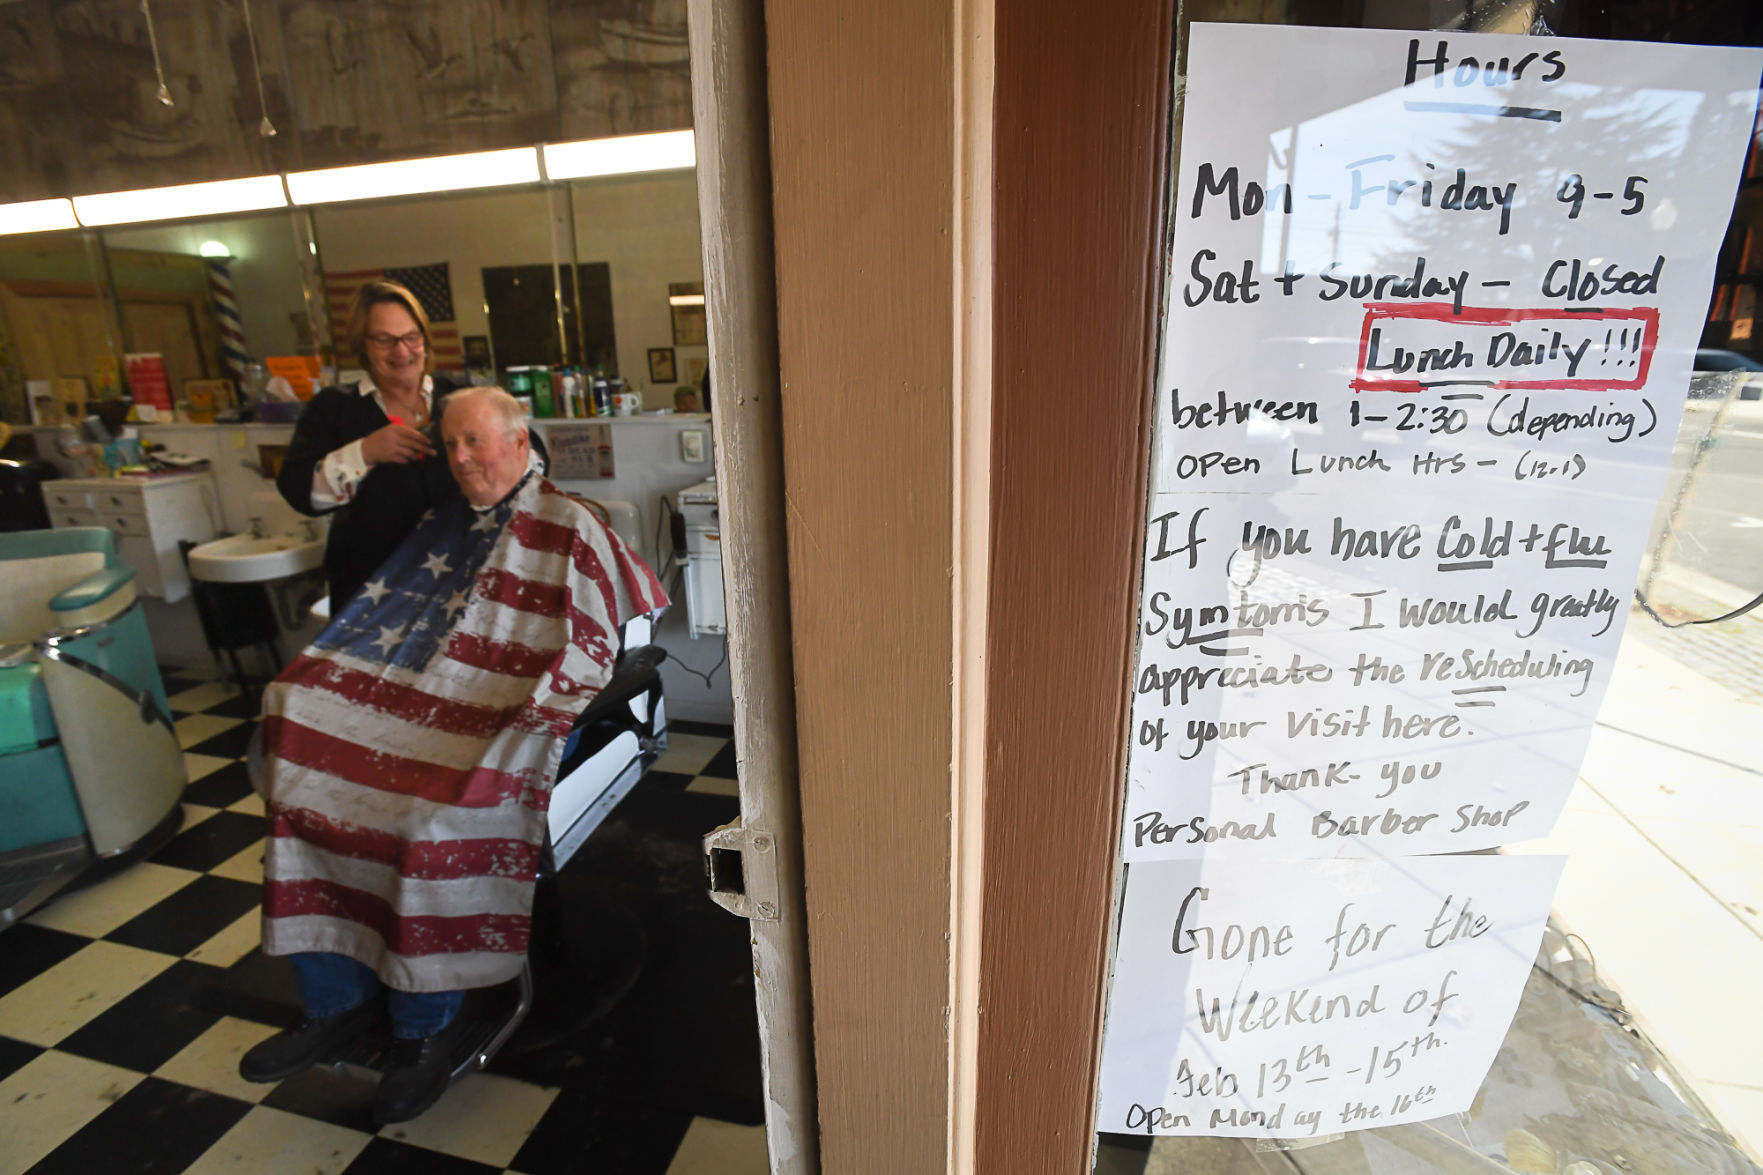 Hours
Mon - Friday 9-5
Sat + Sunday - Closed
Lunch Daily!!!
between 1-2:30 (depending)
Open Lunch Hrs - (12-1)
If you have Cold + flu
Symtoms I would greatly
appreciate the reScheduling
of your visit here.
Thank-you
Personal Barber Shop
Gone for the
Weekend of
Feb 13th - 15th.
Open Monday the 16th